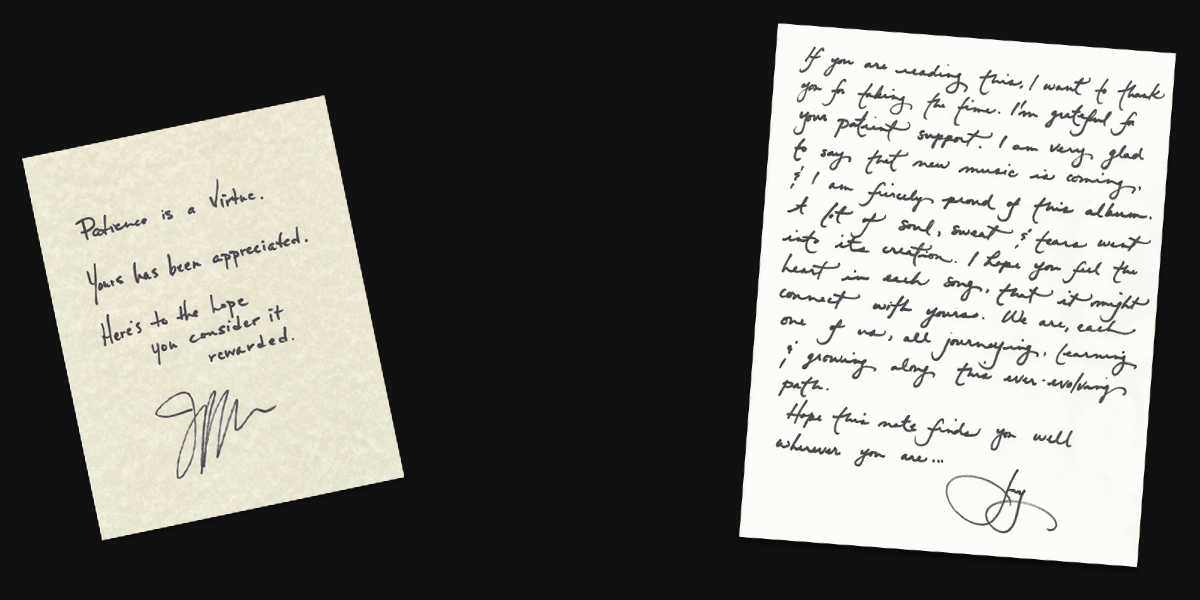 Patience is a Virtue.
Yours has been appreciated.
Here's to the hope
you consider it
rewarded.
If you are reading this, I want to thank
you for taking the time. I'm grateful for
your patient support. I am very glad
to say that new music is coming,
& I am fiercely proud of this album.
A lot of soul, sweat & tears went
into its creation. I hope you feel the
heart in each song, that it might
connect with yours. We are, each
one of us, all journeying, learning
& growing along this ever-evolving
path.
Hope this note finds you well
wherever you are...
Jay